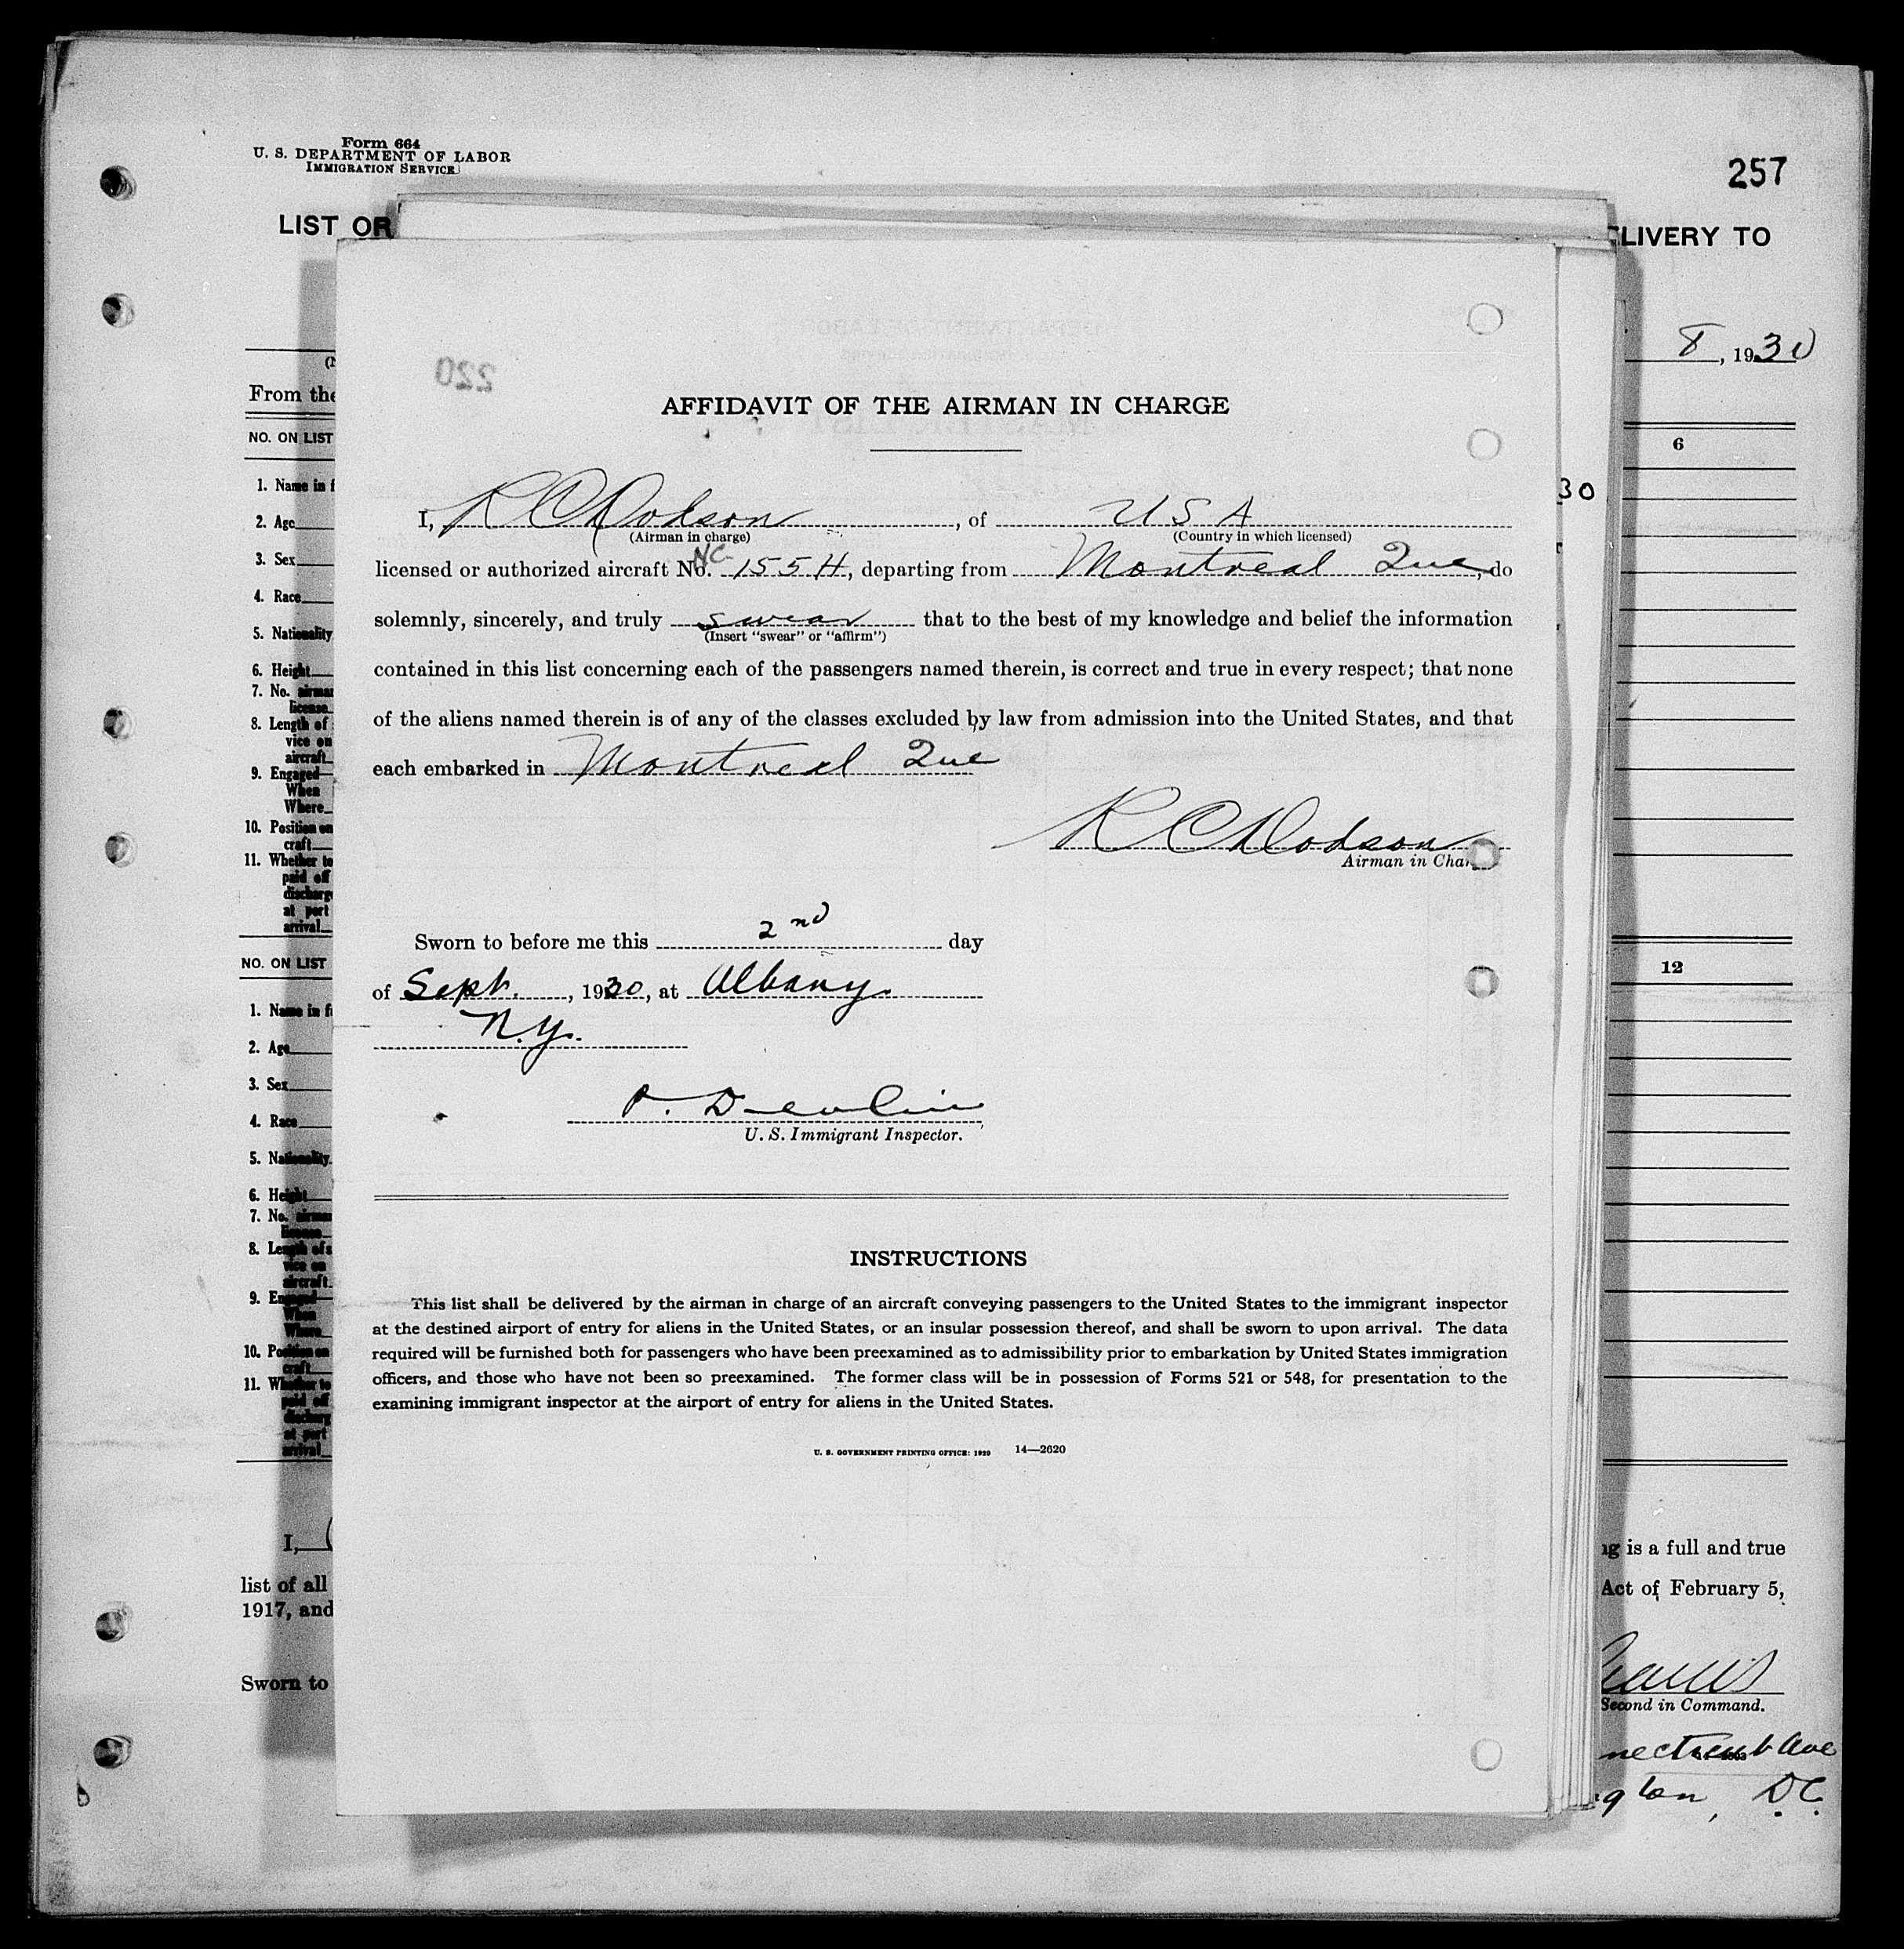 Form 664
U. S. DEPARTMENT OF LABOR
IMMIGRATION SERVICE
257
LIST OR
ELIVERY TO
8, 1930
From the
NO. ON LIST
6
1. Name in f
2. Age
3. Sex
4. Race
5. Nationality
6. Height
7. No. airman
license
8. Length of
vice on
aircraft
9. Engaged
When
Where
10. Position on
craft
11. Whether to
paid off
discharg
at port
arrival
NO. ON LIST
12
1. Name in f
2. Age
3. Sex
4. Race
5. Nationality
6. Height
7. No. airman
license
8. Length of s
vice on
aircraft
9. Engaged
When
Where
10. Position on
craft
11. Whether to
paid off
discharg
at port
arrival
I,
list of all
1917, and
Sworn to
30
220
AFFIDAVIT OF THE AIRMAN IN CHARGE
I, R C Dodson, of USA
(Airman in charge) (Country in which licensed)
licensed or authorized aircraft No. NC 155H, departing from Montreal Que, do
solemnly, sincerely, and truly swear that to the best of my knowledge and belief the information
(Insert "swear" or "affirm")
contained in this list concerning each of the passengers named therein, is correct and true in every respect; that none
of the aliens named therein is of any of the classes excluded by law from admission into the United States, and that
each embarked in Montreal Que
R C Dodson
Airman in Char
Sworn to before me this 2nd day
of Sept., 1930, at Albany
N.Y.
P. Devlin
U. S. Immigrant Inspector.
INSTRUCTIONS
This list shall be delivered by the airman in charge of an aircraft conveying passengers to the United States to the immigrant inspector
at the destined airport of entry for aliens in the United States, or an insular possession thereof, and shall be sworn to upon arrival. The data
required will be furnished both for passengers who have been preexamined as to admissibility prior to embarkation by United States immigration
officers, and those who have not been so preexamined. The former class will be in possession of Forms 521 or 548, for presentation to the
examining immigrant inspector at the airport of entry for aliens in the United States.
U. S. GOVERNMENT PRINTING OFFICE: 1929 14—2620
ng is a full and true
Act of February 5,
Second in Command.
necticut Ave
gton, D.C.